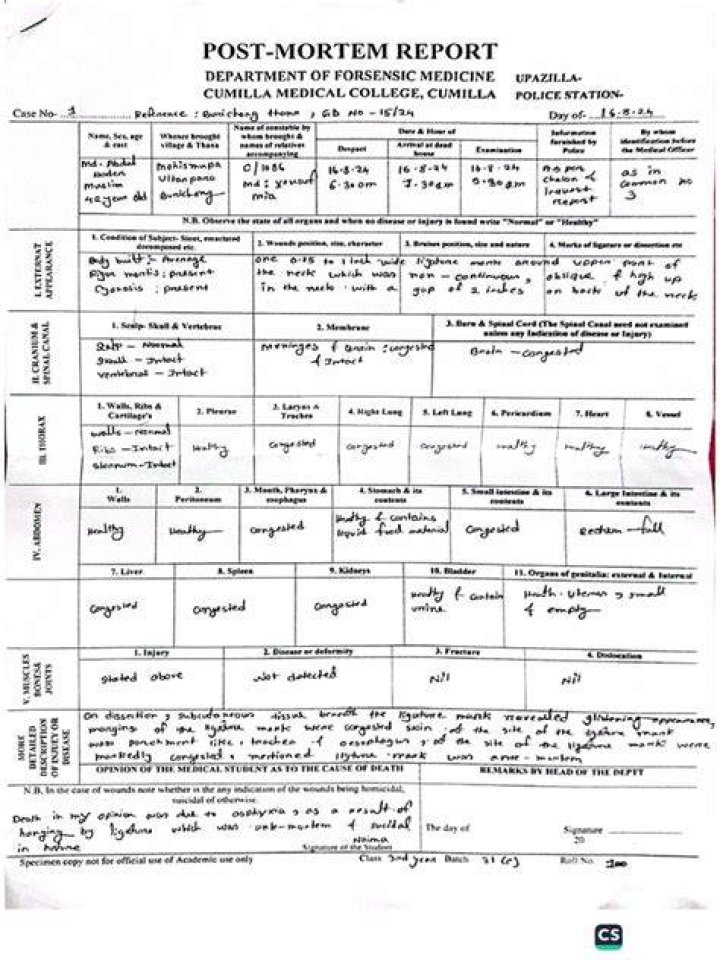 POST-MORTEM REPORT
DEPARTMENT OF FORSENSIC MEDICINE UPAZILLA-
CUMILLA MEDICAL COLLEGE, CUMILLA POLICE STATION-
Case No- 1 Reference : Burichong thana, GD NO -15/24 Day of- 16-8-24
Name, Sex, age & cast
Whence brought village & Thana
Name of constable by whom brought & names of relatives accompanying
Date & Hour of
Despact
Arrival at dead house
Examination
Information furnished by Police
By whom identification before the Medical Officer
Md. Abdul
Muslim
42 year old
C/1086
Md: Yousuf
mia
16-8-24
6.30am
16-8-24
7.30am
16-8-24
As per
chalan &
inquest
report
as in
common no
3
N.B. Observe the state of all organs and when no disease or injury is found write "Normal" or "Healthy"
I. EXTERNAT APPEARANCE
1. Condition of Subject- Stout, emaciated decomposed etc.
2. Wounds position, size, character
3. Bruises position, size and nature
4. Marks of ligature or dissection etc
Body built :- Average
Rigor mortis : present
Cyanosis : present
one 0.75 to 1 inch wide ligature mark around upper part of
the neck which was non - continuous, oblique & high up
in the neck with a gap of 2 inches on back of the neck
II. CRANIUM & SPINAL CANAL
1. Scalp- Skull & Vertebrae
2. Membrane
3. Barn & Spinal Cord (The Spinal Canal need not examined unless any Indication of disease or Injury)
Scalp - Normal
Skull - Intact
vertebral - Intact
Meninges & Brain : congested
& Intact
Brain - congested
III. THORAX
1. Walls, Ribs & Cartilage's
2. Pleurae
3. Larynx & Traches
4. Right Lung
5. Left Lung
6. Pericardium
7. Heart
8. Vessel
walls - Normal
Ribs - Intact
Sternum - Intact
Healthy
congested
congested
congested
Healthy
Healthy
Healthy
IV. ABDOMEN
1. Walls
2. Peritoneum
3. Mouth, Pharynx & esophagus
4. Stomach & its contents
5. Small intestine & its contents
6. Large Intestine & its contents
Healthy
Healthy
Congested
Healthy & contains
liquid food material
Congested
Rectum - full
7. Liver
8. Spleen
9. Kidneys
10. Bladder
11. Organs of genitalia: external & Internal
Congested
Congested
Congested
Healthy & contain
urine
Health. Uterus, small
& empty
V. MUSCLES BONES& JOINTS
1. Injury
2. Disease or deformity
3. Fracture
4. Dislocation
Stated above
Not detected
Nil
Nil
MORE DETAILED DESCRIPTION OF INJUTY OR DISEASE
On dissection, subcutaneous tissue beneath the ligature mark revealed glistening appearance,
margins of the ligature mark were congested skin, at the site of the ligature mark
was parchment like, trachea & oesophagus, at the site of the ligature mark were
markedly congested, mentioned ligature mark was ante-mortem
OPINION OF THE MEDICAL STUDENT AS TO THE CAUSE OF DEATH
REMARKS BY HEAD OF THE DEPTT
N.B, In the case of wounds note whether is the any indication of the wounds being homicidal, suicidal of otherwise.
Death in my opinion was due to asphyxia, as a result of
hanging by ligature which was ante-mortem & suicidal
in nature
Naima
Signature of the Student
The day of
Signature
20
Specimen copy not for official use of Academic use only
Class 3rd year Batch 31 (c) Roll No. 100
CS